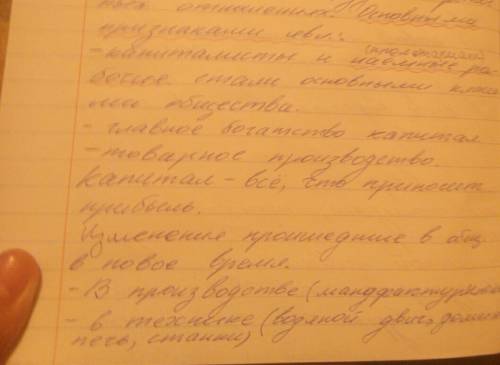 отношениях. Основными
признаками явл.:
(пролетариат)
- капиталисты и наёмные ра-
бочие стали основными класса-
ми общества.
- главное богатство капитал
- товарное производство.
Капитал - всё, что приносит
прибыль.
Изменения прошедшие в общ.
в новое время.
- В производстве (
- в технике (водяной двиг, домна
печь, станки)